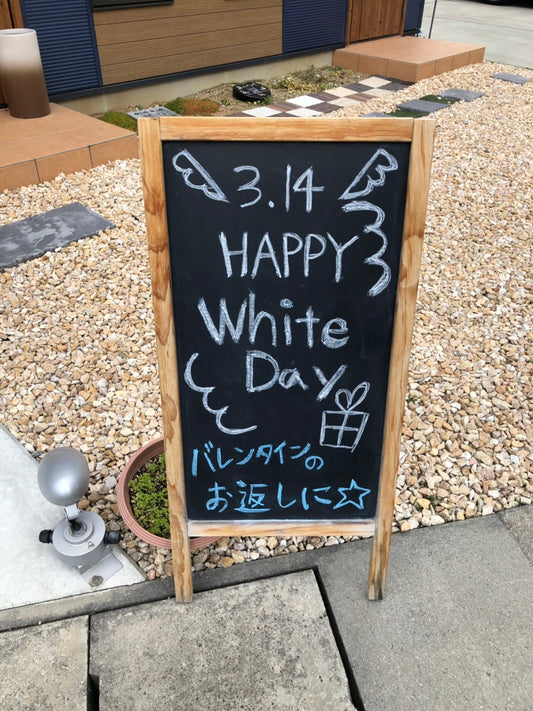 3.14
HAPPY
White
Day
バレンタインの
お返しに☆